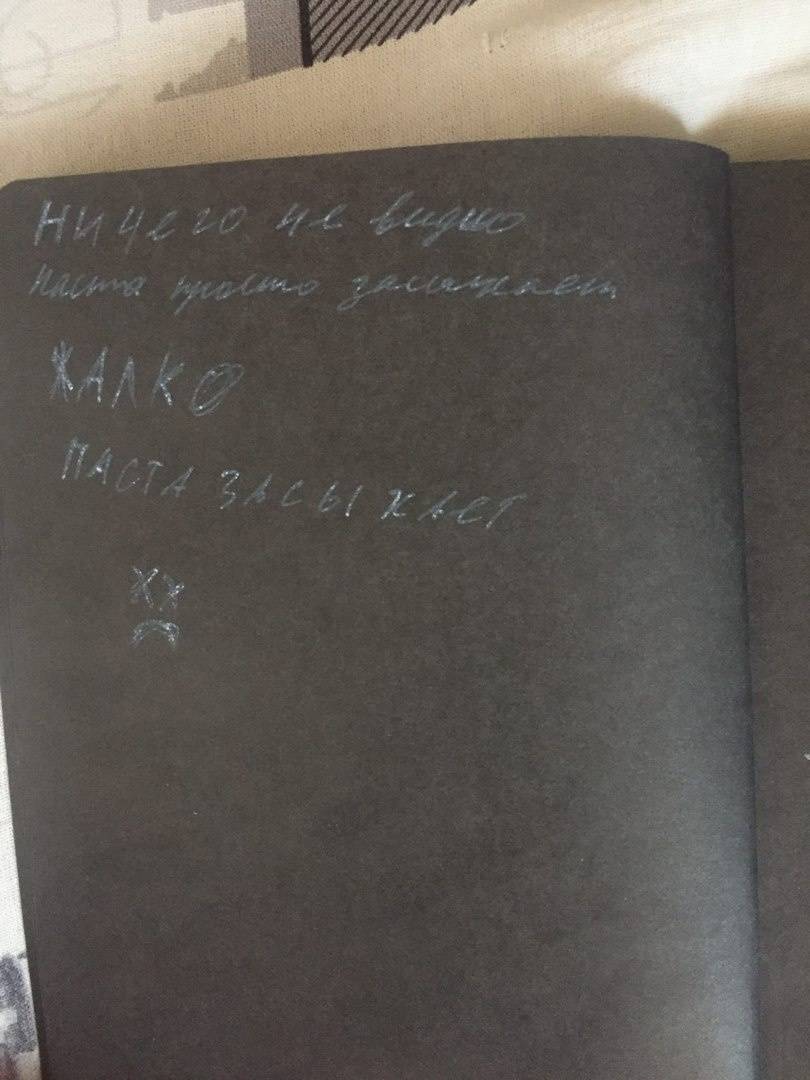 Ничего не видно
паста просто засыхает
ЖАЛКО
ПАСТА ЗАСЫХАЕТ